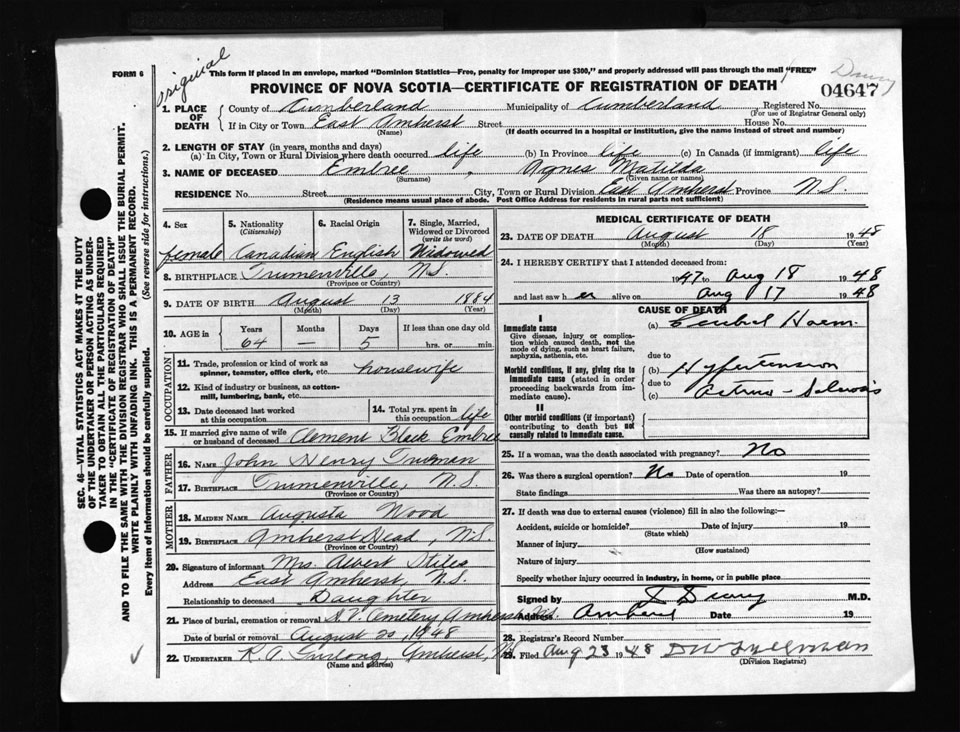 Original
FORM 6
This form if placed in an envelope, marked "Dominion Statistics—Free, penalty for improper use $300," and properly addressed will pass through the mail "FREE"
PROVINCE OF NOVA SCOTIA—CERTIFICATE OF REGISTRATION OF DEATH
04647
1. PLACE OF DEATH
County of Cumberland Municipality of Cumberland Registered No.
(For use of Registrar General only)
If in City or Town East Amherst Street House No.
(Name) (If death occurred in a hospital or institution, give the name instead of street and number)
2. LENGTH OF STAY (in years, months and days)
(a) In City, Town or Rural Division where death occurred life (b) In Province life (c) In Canada (if immigrant) life
3. NAME OF DECEASED Embree, Agnes Matilda
(Surname) (Given name or names)
RESIDENCE No. Street City, Town or Rural Division East Amherst Province N.S.
(Residence means usual place of abode. Post Office Address for residents in rural parts not sufficient)
4. Sex 5. Nationality (Citizenship) 6. Racial Origin 7. Single, Married, Widowed or Divorced (write the word)
female Canadian English Widowed
8. BIRTHPLACE Trumenville, N.S.
(Province or Country)
9. DATE OF BIRTH August 13 1884
(Month) (Day) (Year)
10. AGE in Years Months Days If less than one day old
64 — 5 hrs. or min.
OCCUPATION
11. Trade, profession or kind of work as spinner, teamster, office clerk, etc. housewife
12. Kind of industry or business, as cotton-mill, lumbering, bank, etc.
13. Date deceased last worked at this occupation 14. Total yrs. spent in this occupation life
15. If married give name of wife or husband of deceased Clement Black Embree
FATHER
16. NAME John Henry Truman
17. BIRTHPLACE Trumenville, N.S.
(Province or Country)
MOTHER
18. MAIDEN NAME Augusta Wood
19. BIRTHPLACE Amherst Head, N.S.
(Province or Country)
20. Signature of informant Mrs. Albert Stiles
Address East Amherst, N.S.
Relationship to deceased Daughter
21. Place of burial, cremation or removal Cemetery Amherst N.S.
Date of burial or removal August 20, 1948
22. UNDERTAKER R.A. Furlong, Amherst, N.S.
(Name and address)
MEDICAL CERTIFICATE OF DEATH
23. DATE OF DEATH August 18 1948
(Month) (Day) (Year)
24. I HEREBY CERTIFY that I attended deceased from:
1947 to Aug 18 1948
and last saw her alive on Aug 17 1948
CAUSE OF DEATH
I
Immediate cause
Give disease, injury or complication which caused death, not the mode of dying, such as heart failure, asphyxia, asthenia, etc.
(a) Cerebral Haem.
due to
Morbid conditions, if any, giving rise to immediate cause (stated in order proceeding backwards from immediate cause).
(b) Hypertension
due to
(c)
II
Other morbid conditions (if important) contributing to death but not causally related to immediate cause.
25. If a woman, was the death associated with pregnancy? No
26. Was there a surgical operation? No Date of operation 19
State findings Was there an autopsy?
27. If death was due to external causes (violence) fill in also the following:—
Accident, suicide or homicide? Date of injury 19
(State which)
Manner of injury
(How sustained)
Nature of injury
Specify whether injury occurred in industry, in home, or in public place
Signed by M.D.
Address Amherst Date 19
28. Registrar's Record Number
29. Filed Aug 23 1948
(Division Registrar)
SEC. 46—VITAL STATISTICS ACT MAKES IT THE DUTY
OF THE UNDERTAKER OR PERSON ACTING AS UNDER-
TAKER TO OBTAIN ALL THE PARTICULARS REQUIRED
IN THE "CERTIFICATE OF REGISTRATION OF DEATH"
AND TO FILE THE SAME WITH THE DIVISION REGISTRAR WHO SHALL ISSUE THE BURIAL PERMIT.
WRITE PLAINLY WITH UNFADING INK. THIS IS A PERMANENT RECORD.
Every item of information should be carefully supplied. (See reverse side for instructions.)